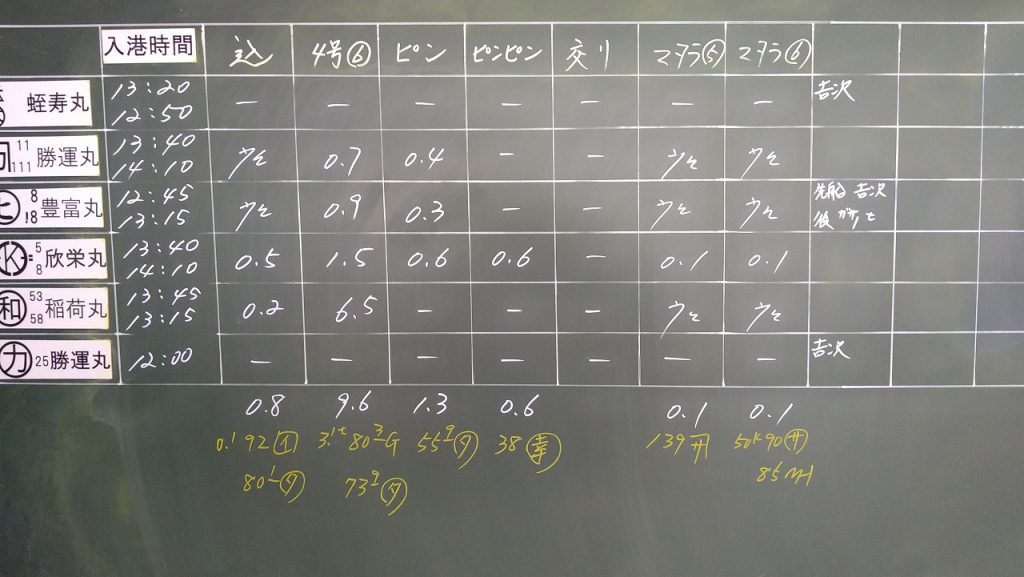 入港時間 込 4号⑥ ピン ピンピン 交り マダラ⑤ マダラ⑥
蛭寿丸 13:20 12:50 — — — — — — — 吉沢
11 111 勝運丸 13:40 14:10 ウと 0.7 0.4 — — ウと ウと
ヒ 8 18 豊富丸 12:45 13:15 ウと 0.9 0.3 — — ウと ウと 先船 吉沢
後
K 5 8 欣栄丸 13:40 14:10 0.5 1.5 0.6 0.6 — 0.1 0.1
和 53 58 稲荷丸 13:45 13:15 0.2 6.5 — — — ウと ウと
カ 25 勝運丸 12:00 — — — — — — — 吉沢
0.8 9.6 1.3 0.6 0.1 0.1
0.1 92 80 55 38 139 50K 90
80 73 85